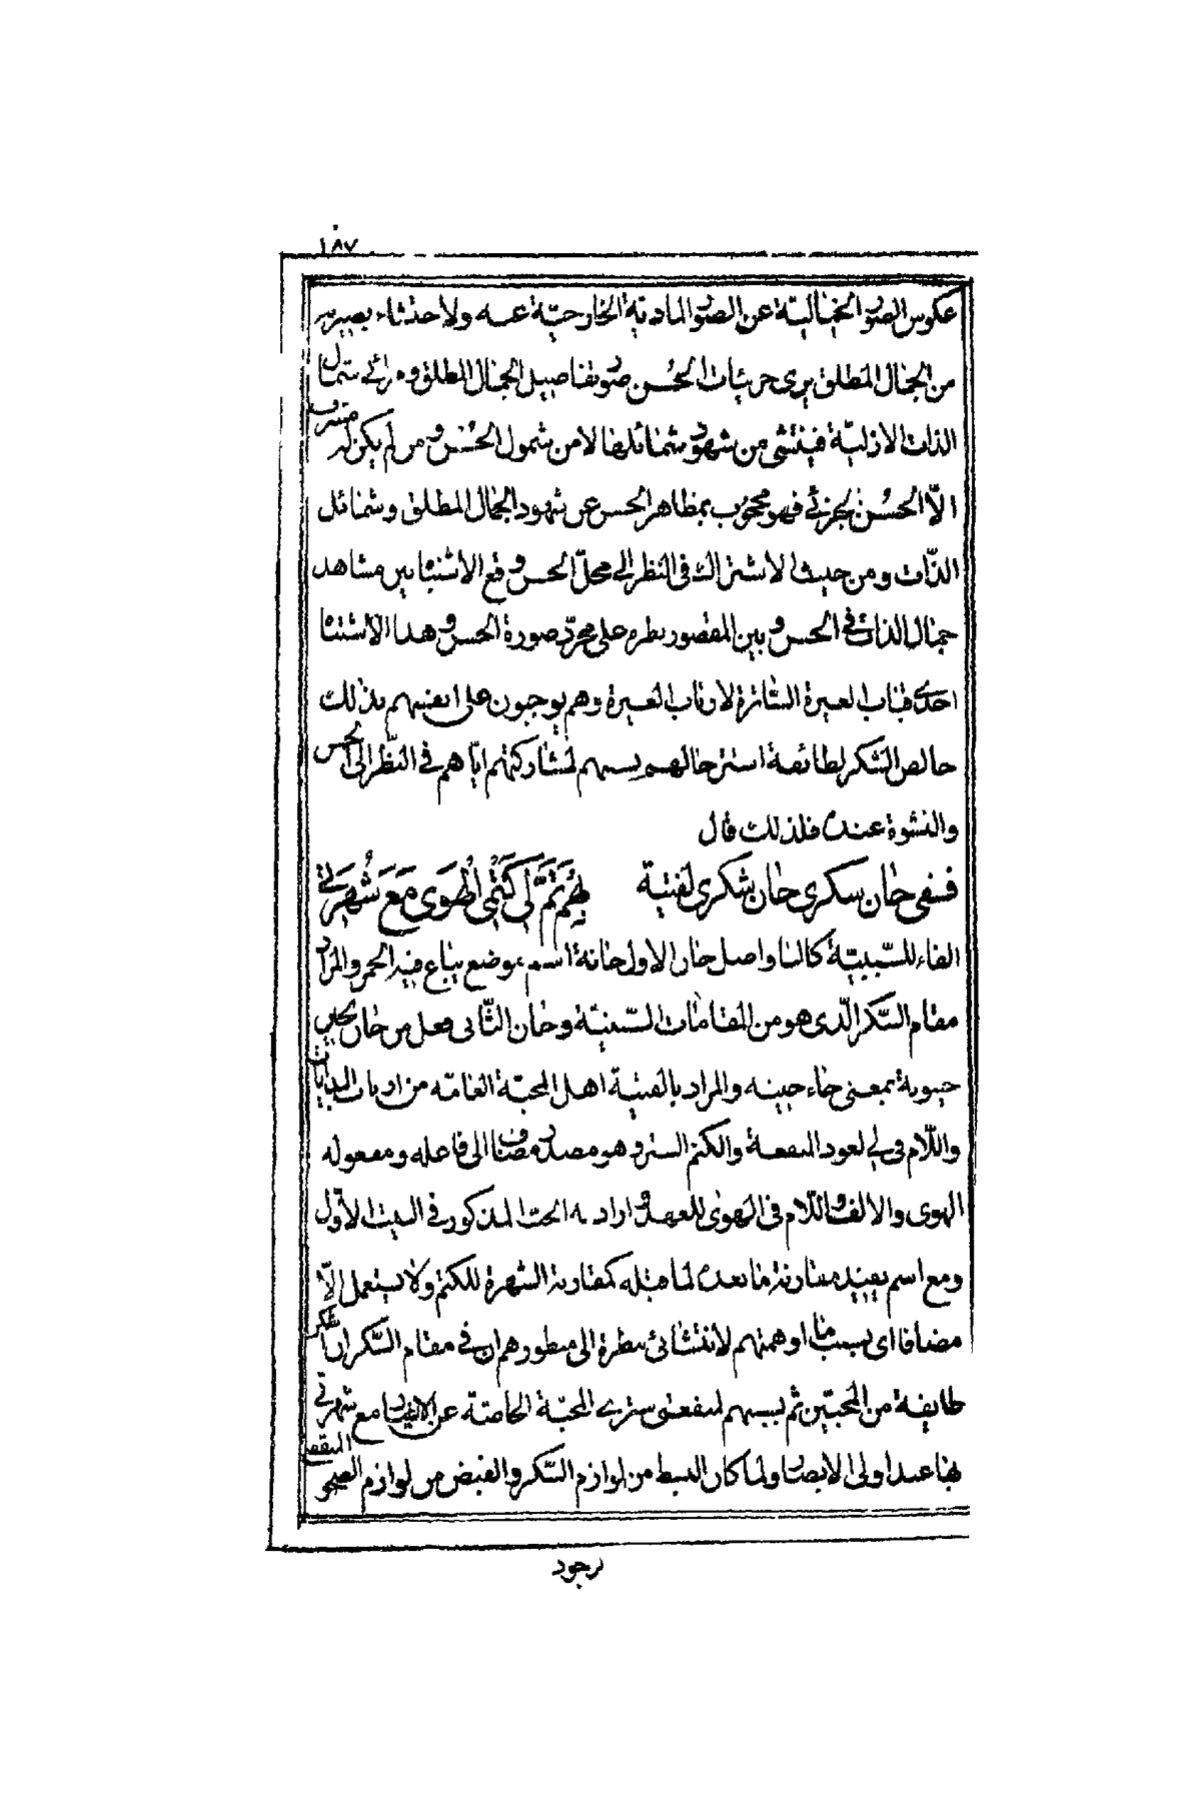 ١٨٧
عكوس الصور الخيالية عن الصور المادية الخارجية عنه ولاحتذاء بصيرته
من الجمال المطلق يرى جزئيات الحسن صور تفاصيل الجمال المطلق ومرائي شمال
الذات الازلية فينتشى من شهود شمائلها لا من شمول الحسن ومن لم يكن له مشرب
الّا الحسن الجزئي فهو محجوب بمظاهر الحسن عن شهود الجمال المطلق وشمائل
الذّات ومن حيث الاشتراك فى النظر الى محلّ الحسن وقع الاشتباه بين مشاهد
جمال الذات في الحسن وبين المقصور نظره على مجرّد صورة الحسن وهذا الاشتباه
احدى قباب الغيرة الساترة لارباب الغيرة وهم يوجبون على انفسهم بذلك
خالص الشكر لطائفة استتر حالهم بسببهم لمشاركتهم ايّاهم في النّظر الى الحسن
والنشوة عنده فلذلك قال
ففى حان سكرى حان شكرى لفتية بهم تمّ لى كتم الهوى مع شهرتى
الفاء للسّببيّة كالنا واصل حان الاول حانة اسم موضع يباع فيه الخمر والمراد
مقام السّكر الّذى هو من المقامات السّنيّة وحان الثّانى فعل من حان يحين
حينونة بمعنى جاء حينه والمراد بالفتية اهل المحبّة العامّه من ارباب البدايات
واللّام فى لي لعود المنفعة والكتم الستر وهو مصدر مضاف الى فاعله ومفعوله
الهوى والالف واللّام فى الهوى للعهد واراد به الحبّ المذكور في البيت الأوّل
ومع اسم يفيد مقارنة ما بعده لما قبله كمقارنة الشهرة للكتم ولا يستعمل الّا
مضافا اى بسبب ما اوهمتهم لانتشائى بنظرة الى منظورهم ان في مقام السّكر ان اشكر
طايفة من المحبّين ثم بسببهم لمنفعتى ستر المحبّة الخاصّة عن الاغيار مع شهرتى
بها عند اولى الابصار ولما كان البسط من لوازم السّكر والقبض من لوازم الصحو